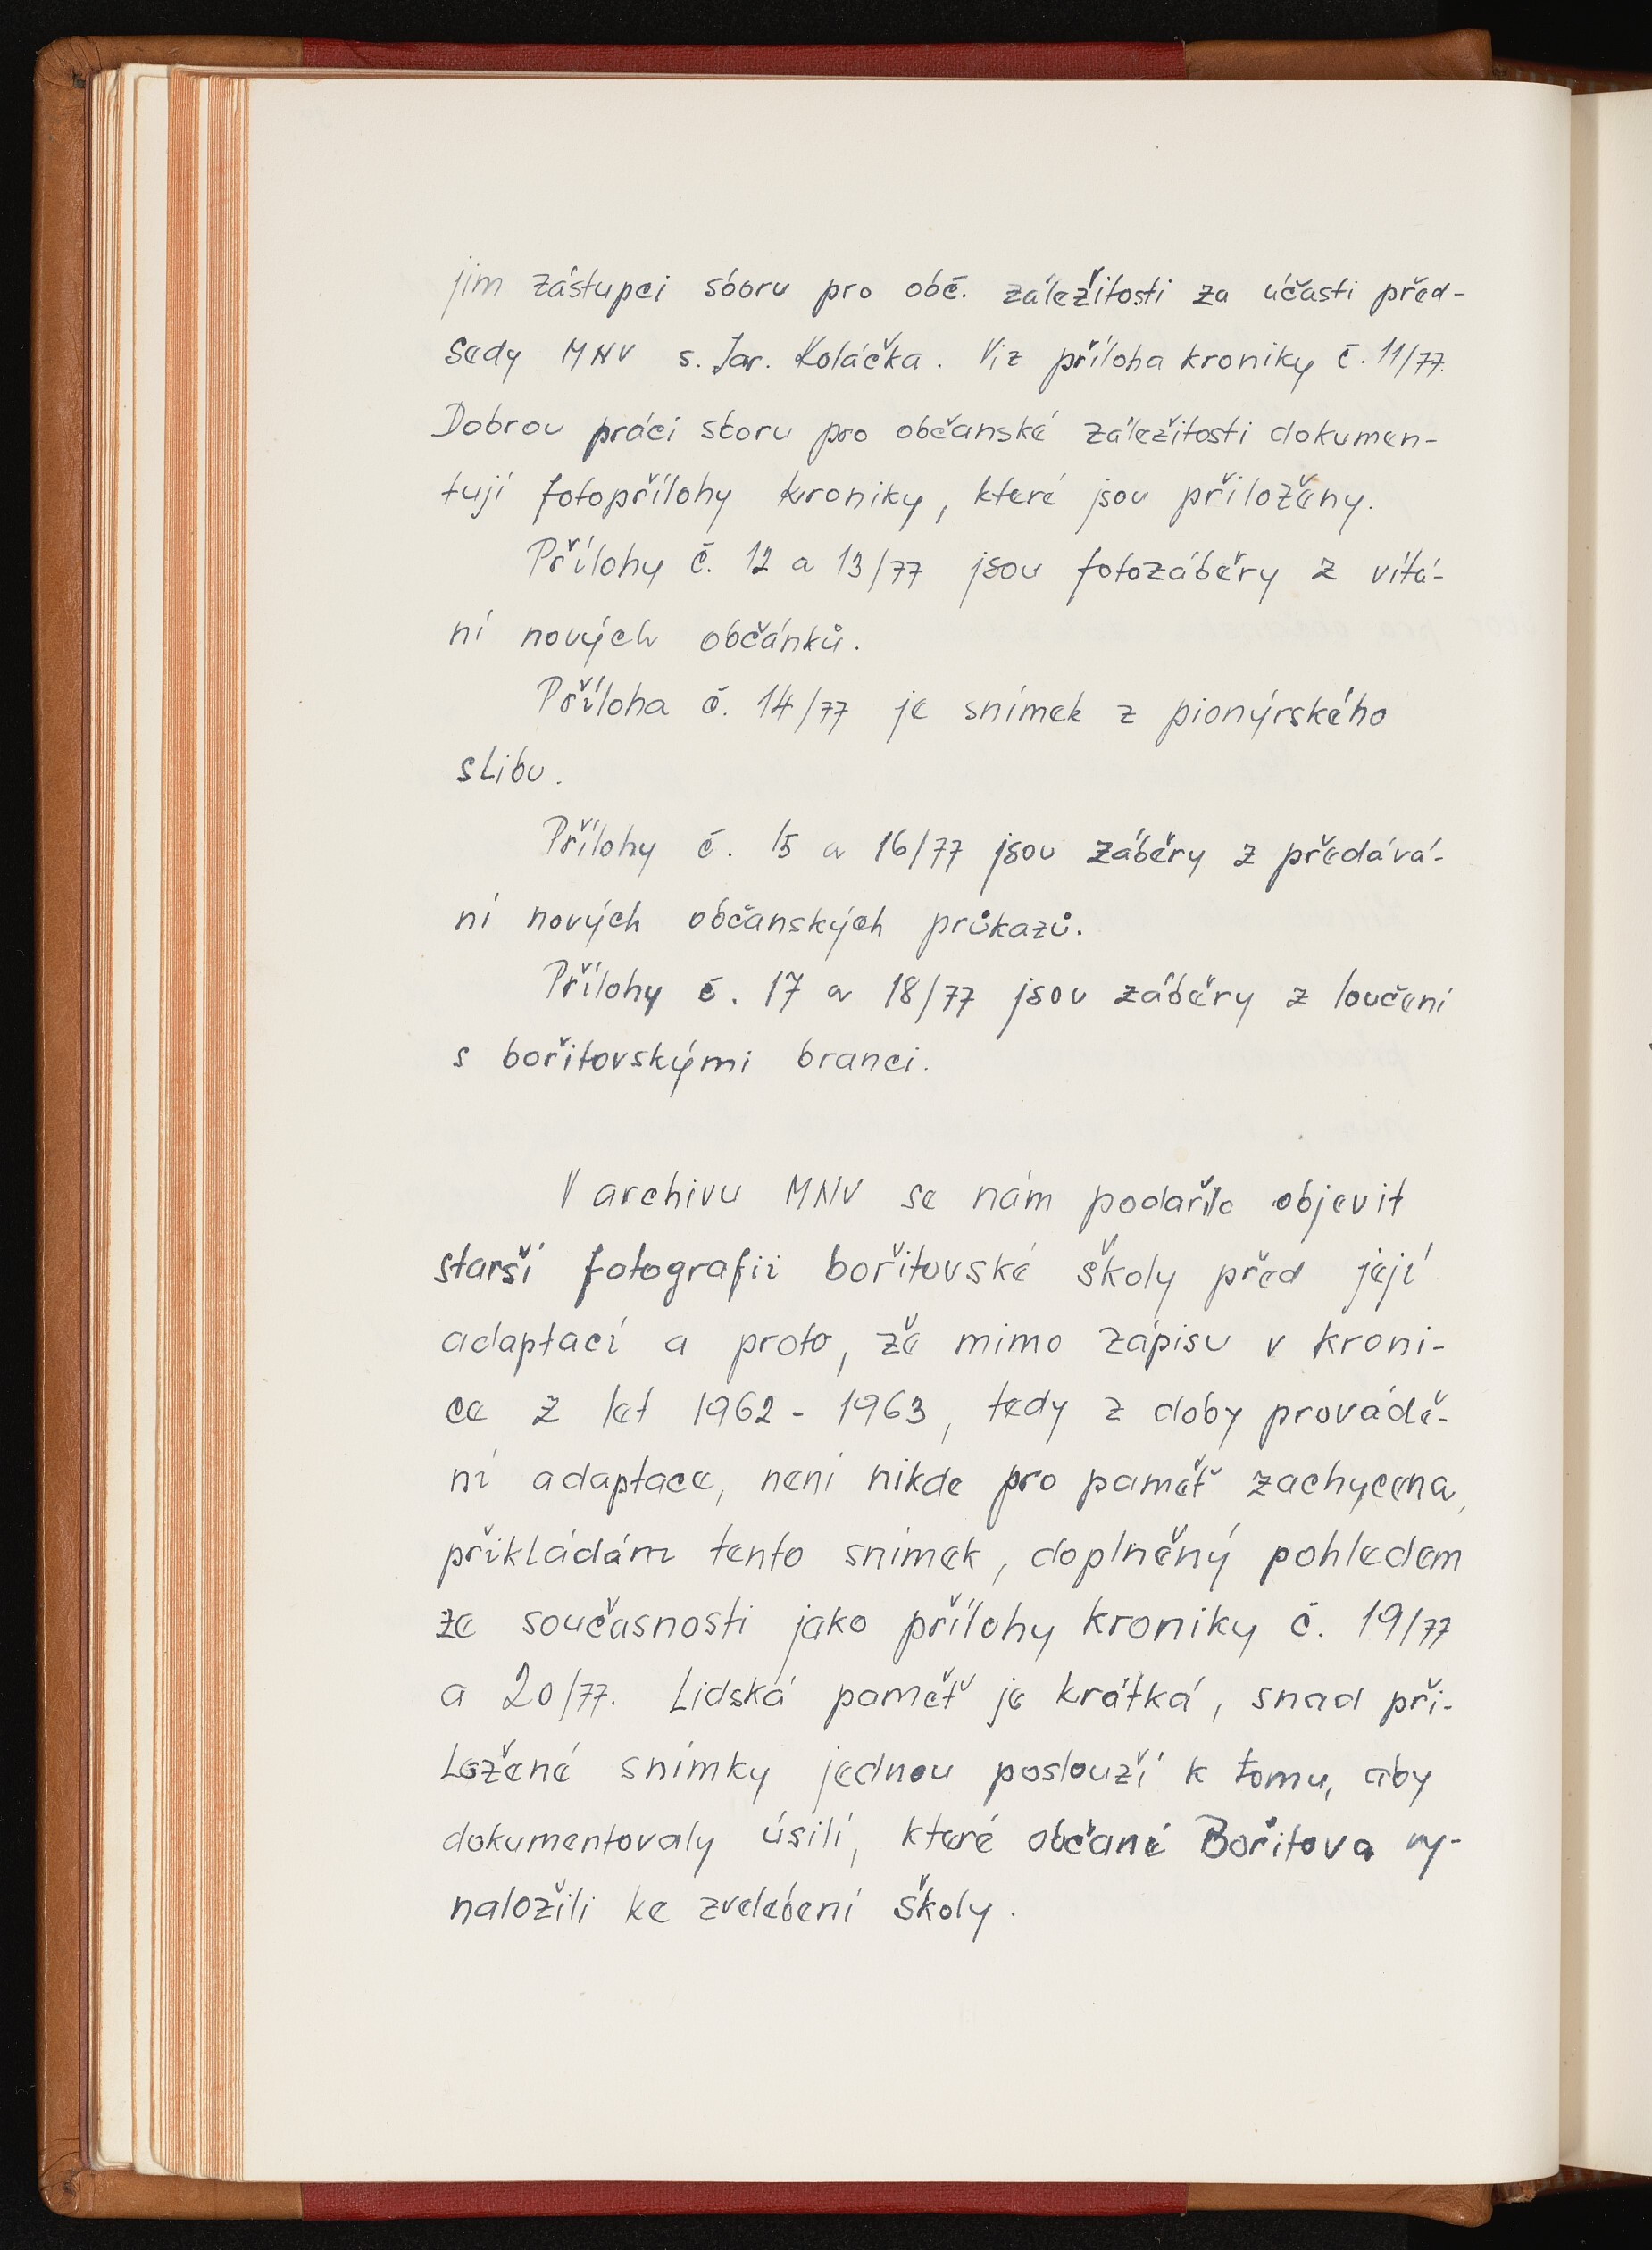 jim zástupci sboru pro obč. záležitosti za účasti před-
sedy MNV s. Jar. Koláčka. Viz příloha kroniky č. 11/77.
Dobrou práci sboru pro občanské záležitosti dokumen-
tují fotopřílohy kroniky, které jsou přiloženy.
Přílohy č. 12 a 13/77 jsou fotozáběry z vítá-
ní nových občánků.
Příloha č. 14/77 je snímek z pionýrského
slibu.
Přílohy č. 15 a 16/77 jsou záběry z předává-
ní nových občanských průkazů.
Přílohy č. 17 a 18/77 jsou záběry z loučení
s bořitovskými branci.
V archivu MNV se nám podařilo objevit
starší fotografii bořitovské školy před její
adaptací a proto, že mimo zápisu v kroni-
ce z let 1962 - 1963, tedy z doby provádě-
ní adaptace, není nikde pro paměť zachycena,
přikládám tento snímek, doplněný pohledem
ze současnosti jako přílohy kroniky č. 19/77
a 20/77. Lidská paměť je krátká, snad při-
ložené snímky jednou poslouží k tomu, aby
dokumentovaly úsilí, které občané Bořitova vy-
naložili ke zvelebení školy.